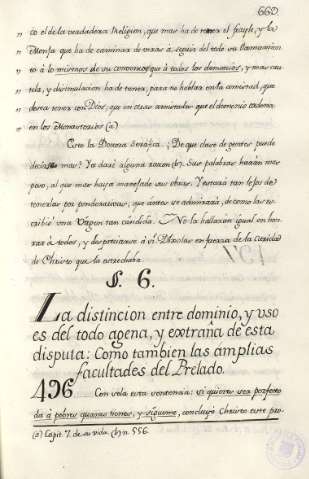 660
„ co el de la verdadera Religion, que mas ha de temer el frayle, y la
„ Monja que ha de caminar de veras à seguir del todo su llamamien
„ to à los mismos de su convento, que à todos los demonios, y mas cau
„ tela, y disimulacion ha de tener, para no hablar en la amistad, que
„ desea tener con Dios, que en otras amistades que el demonio ordena
„ en los Monasterios (a)
Esto la Doctora Serafica. De que clase de gentes puede
decirse mas? Ya daré alguna razon (b). Sus palabras haràn mas
peso, al que mas haya manejado sus obras. Y estará tan lejos de
tenerlas por ponderativas, que antes se admirará, de como las es-
cribió una Virgen tan cándida. No la hallarán igual en hon-
rar à todos, y desperciarse à sí. Hablar en fuerza de la caridad
de Christo que la estrechaba.
§. 6.
La distincion entre dominio, y uso
es del todo agena, y extraña de esta
disputa: Como tambien las amplias
facultades del Prelado.
496 Con vela esta sentencia: si quieres ser perfecto
da à pobres quanto tienes, y sigueme, concluyó Christo este pre-
(a) Capit. 7. de su vida. (b) n. 556.